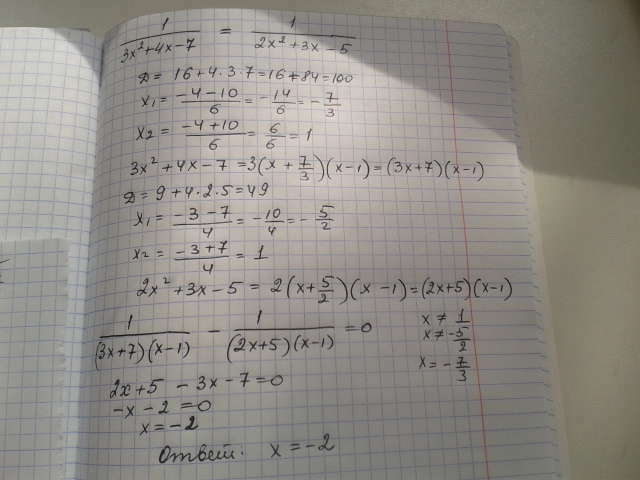 1/(3x²+4x-7) = 1/(2x²+3x-5)
D = 16+4·3·7=16+84=100
x₁= (-4-10)/6 = -14/6 = -7/3
x₂= (-4+10)/6 = 6/6 = 1
3x²+4x-7 =3(x+7/3)(x-1)=(3x+7)(x-1)
D=9+4·2·5=49
x₁= (-3-7)/4 = -10/4 = -5/2
x₂= (-3+7)/4 = 1
2x²+3x-5 = 2(x+5/2)(x-1)=(2x+5)(x-1)
1/((3x+7)(x-1)) - 1/((2x+5)(x-1)) =0
x≠1
x≠-5/2
x=-7/3
2x+5 -3x-7=0
-x-2=0
x=-2
Ответ: x=-2